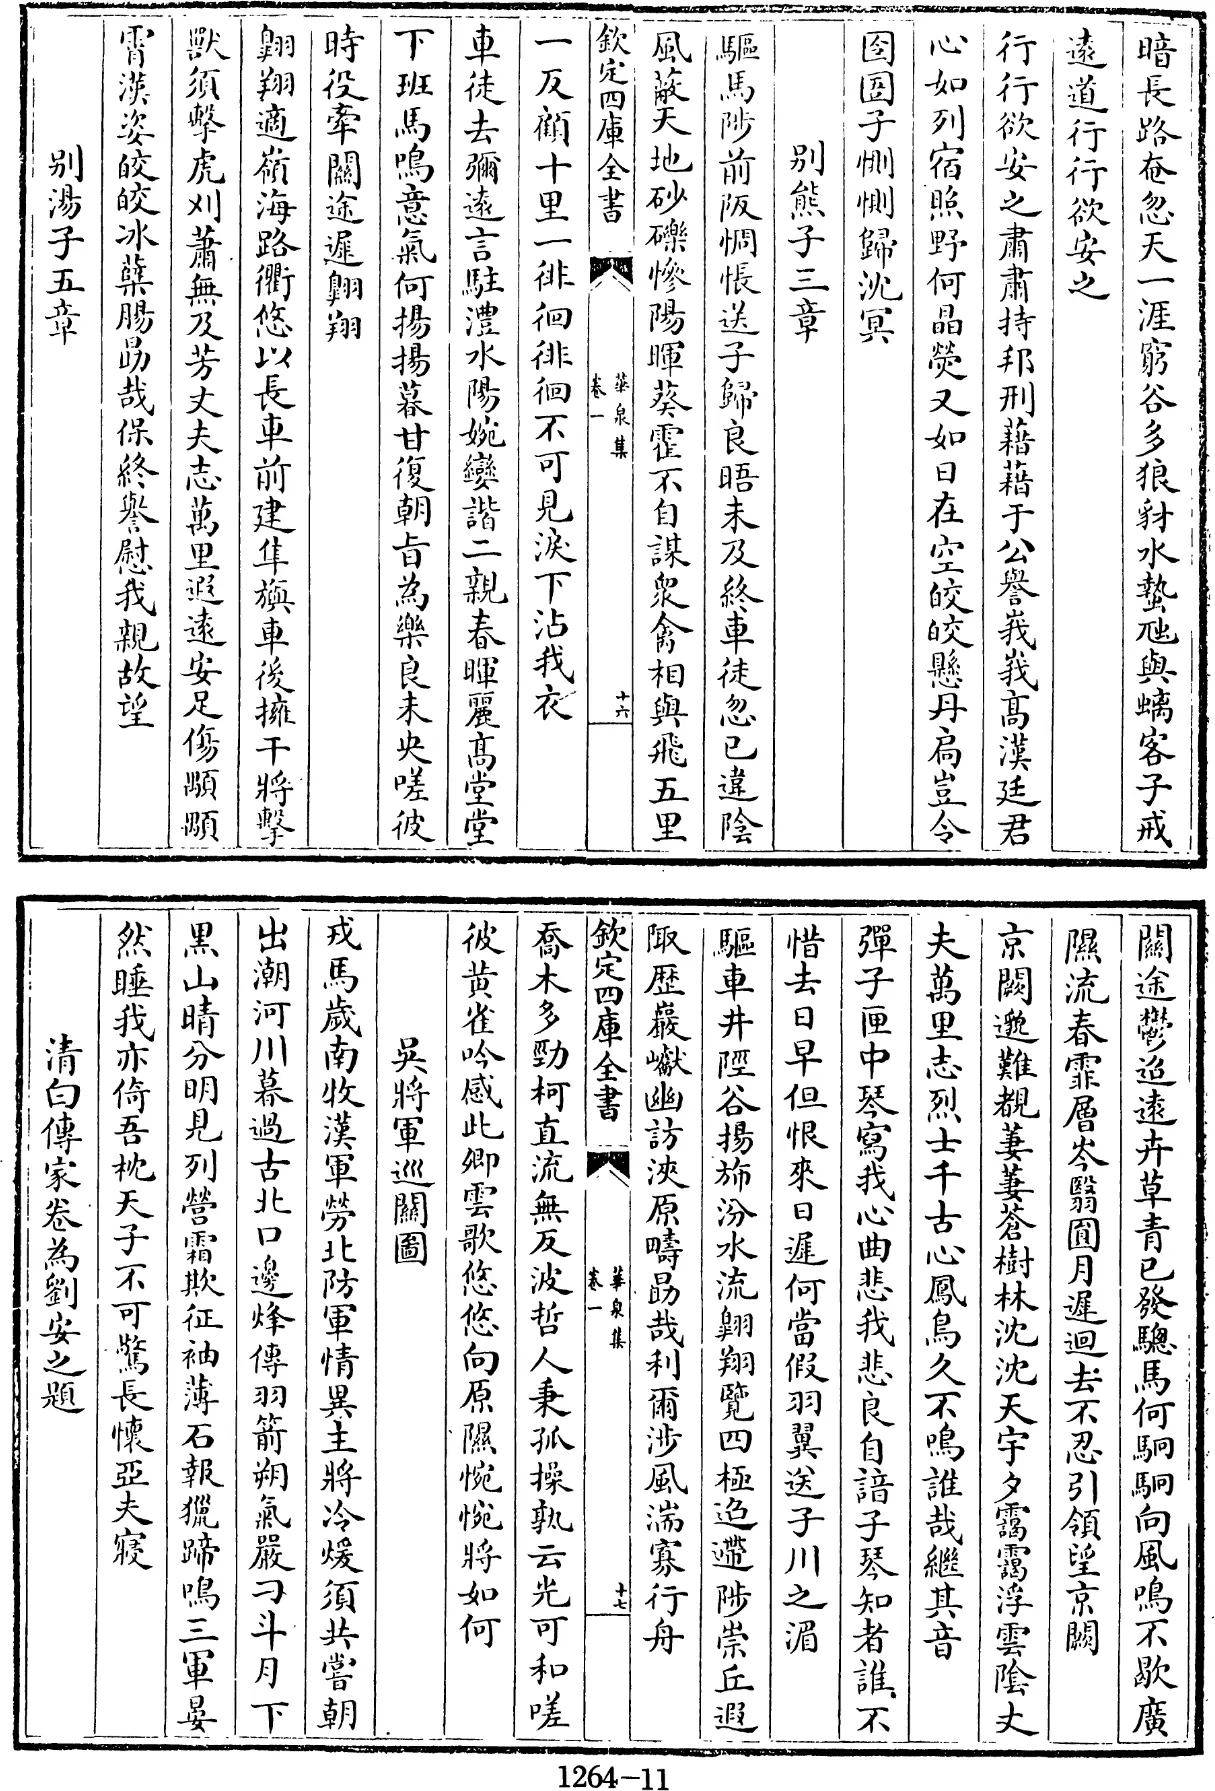 暗長路奄忽天一涯窮谷多狼豺水蟄虺與螭客子戒
遠道行行欲安之
行行欲安之肅肅持邦刑藉藉于公譽峩峩髙漢廷君
心如列宿照野何晶熒又如日在空皎皎懸丹扃豈令
囹圄子惻惻歸沈冥
别熊子三章
驅馬陟前阪惆悵送子歸良晤未及終車徒忽已違陰
風蔽天地砂礫慘陽暉葵藿不自謀衆禽相與飛五里
欽定四庫全書
華泉集
卷一
十六
一反顧十里一徘徊徘徊不可見淚下沾我衣
車徒去彌遠言駐澧水陽婉孌諧二親春暉麗髙堂堂
下班馬鳴意氣何揚揚暮甘復朝旨為樂良未央嗟彼
時役牽關途遲翺翔
翺翔適嶺海路衢悠以長車前建隼旟車後擁干將擊
獸須擊虎刈蕭無及芳丈夫志萬里遐遠安足傷顒顒
霄漢姿皎皎冰蘖腸勗哉保終譽慰我親故望
别湯子五章
關途鬱迢遠卉草青已發驄馬何駉駉向風鳴不歇廣
隰流春霏層岑翳圓月遲迴去不忍引領望京闕
京闕邈難覩萋萋蒼樹林沈沈天宇夕靄靄浮雲陰丈
夫萬里志烈士千古心鳳鳥久不鳴誰哉繼其音
彈子匣中琴寫我心曲悲我悲良自諳子琴知者誰不
惜去日早但恨來日遲何當假羽翼送子川之湄
驅車井陘谷揚斾汾水流翺翔覽四極迢遰陟崇丘遐
陬歴巖巘幽訪浹原疇勗哉利爾涉風湍寡行舟
欽定四庫全書
華泉集
卷一
十七
喬木多勁柯直流無反波哲人秉孤操孰云光可和嗟
彼黄雀吟感此卿雲歌悠悠向原隰惋惋將如何
吳將軍巡關圖
戎馬歲南牧漢軍勞北防軍情異主將冷煖須共嘗朝
出潮河川暮過古北口邊烽傳羽箭朔氣嚴刁斗月下
黒山晴分明見列營霜欺征袖薄石報獵蹄鳴三軍晏
然睡我亦倚吾枕天子不可驚長懷亞夫寢
清白傳家卷為劉安之題
1264-11